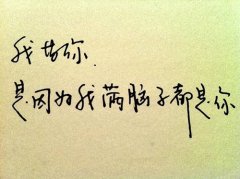 我苦你.
是因为我满脑子都是你